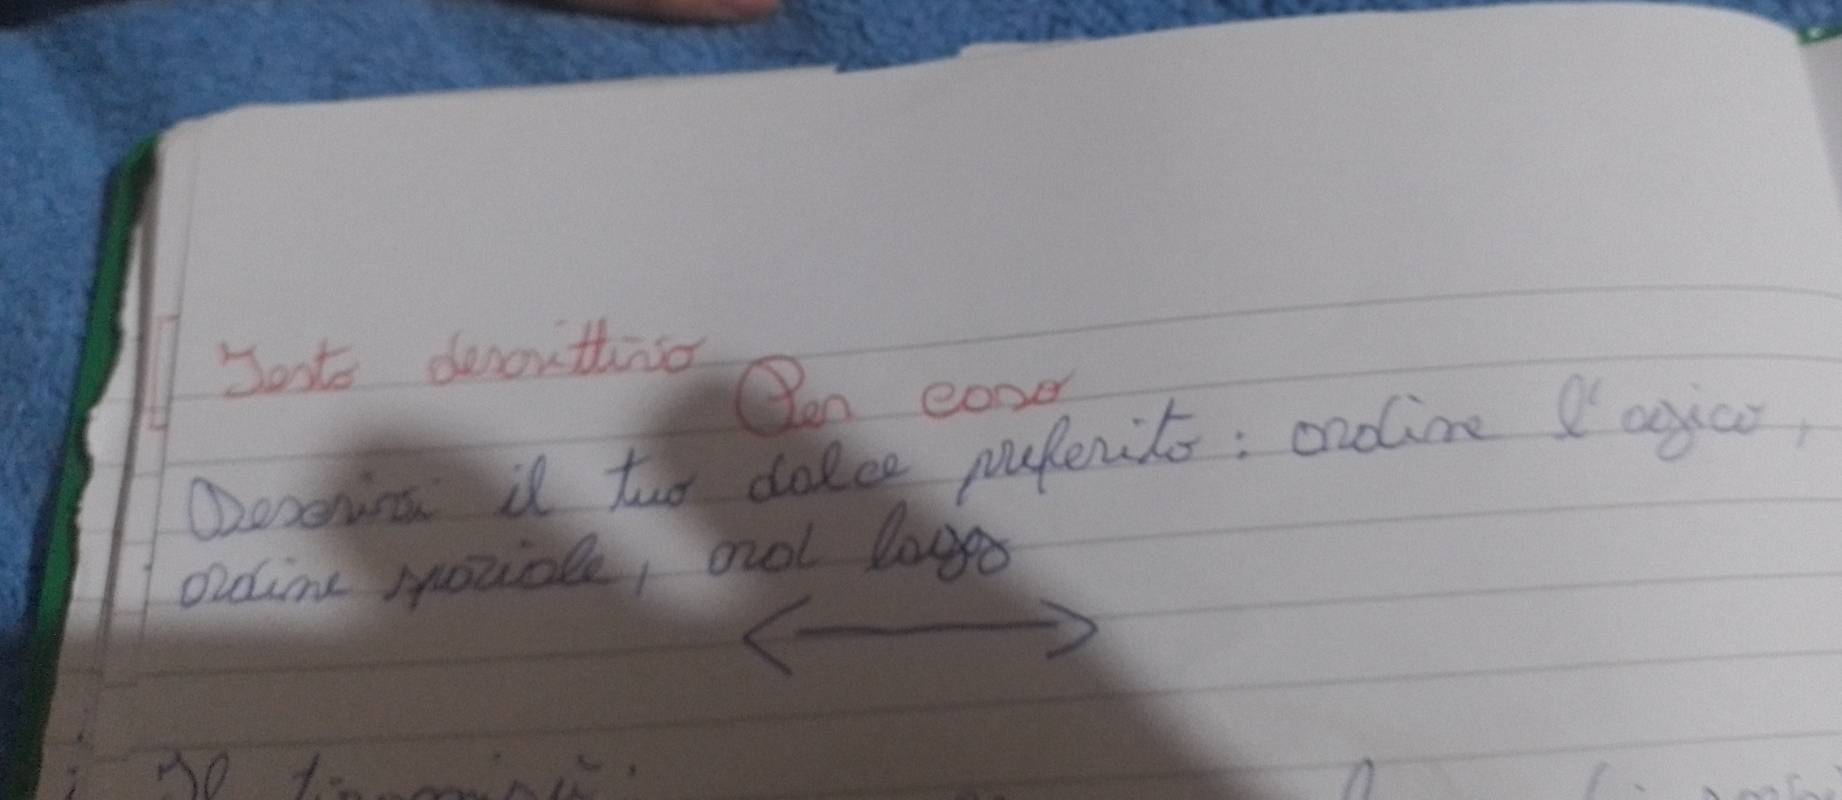 Testo descrittivo
Per casa
Descrivi il tuo dolce preferito: ordine l'ogico,
ordine spaziale, ord logo
Il tiramisù